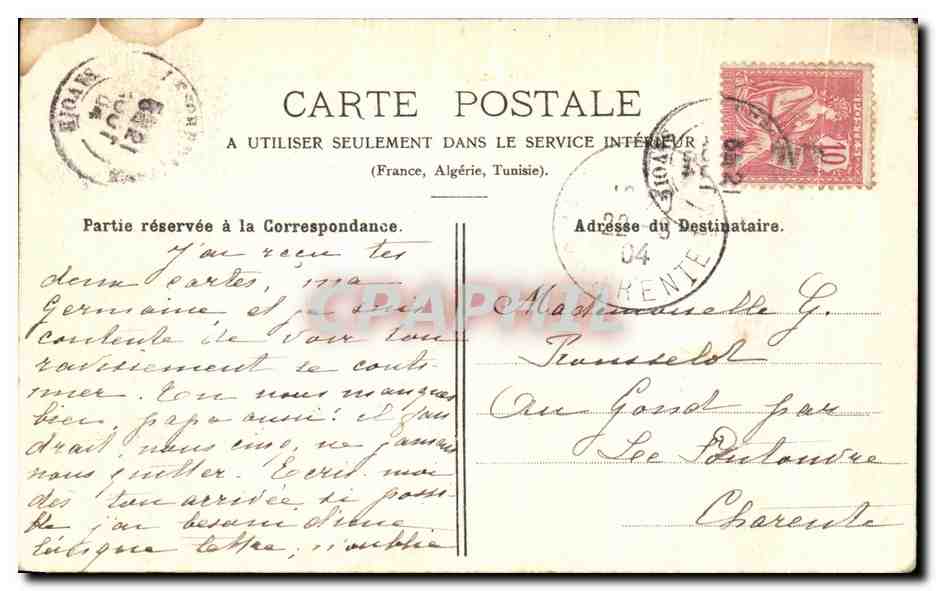 CARTE POSTALE
A UTILISER SEULEMENT DANS LE SERVICE INTÉRIEUR
(France, Algérie, Tunisie).
Partie réservée à la Correspondance.
J'ai reçu tes
deux cartes, ma
Germaine, et je suis
contente de voir ton
ravissement se conti-
nuer. Tu nous manques
bien, papa aussi! il fau
drait, nous cinq, ne jamais
nous quitter. Ecris-moi
dès ton arrivée si possi-
ble j'ai besoin d'une
longue lettre, n'oublie
Adresse du Destinataire.
Mademoiselle G.
Rousselot
Au Gond par
Le Pontouvre
Charente
SAVOIE
10
SAVOIE
22
04
CPAPHIL